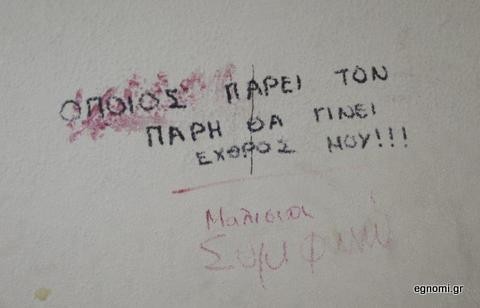 ΟΠΟΙΟΣ ΠΑΡΕΙ ΤΟΝ
ΠΑΡΗ ΘΑ ΓΙΝΕΙ
ΕΧΘΡΟΣ ΜΟΥ!!!
Συμφωνώ
egnomi.gr